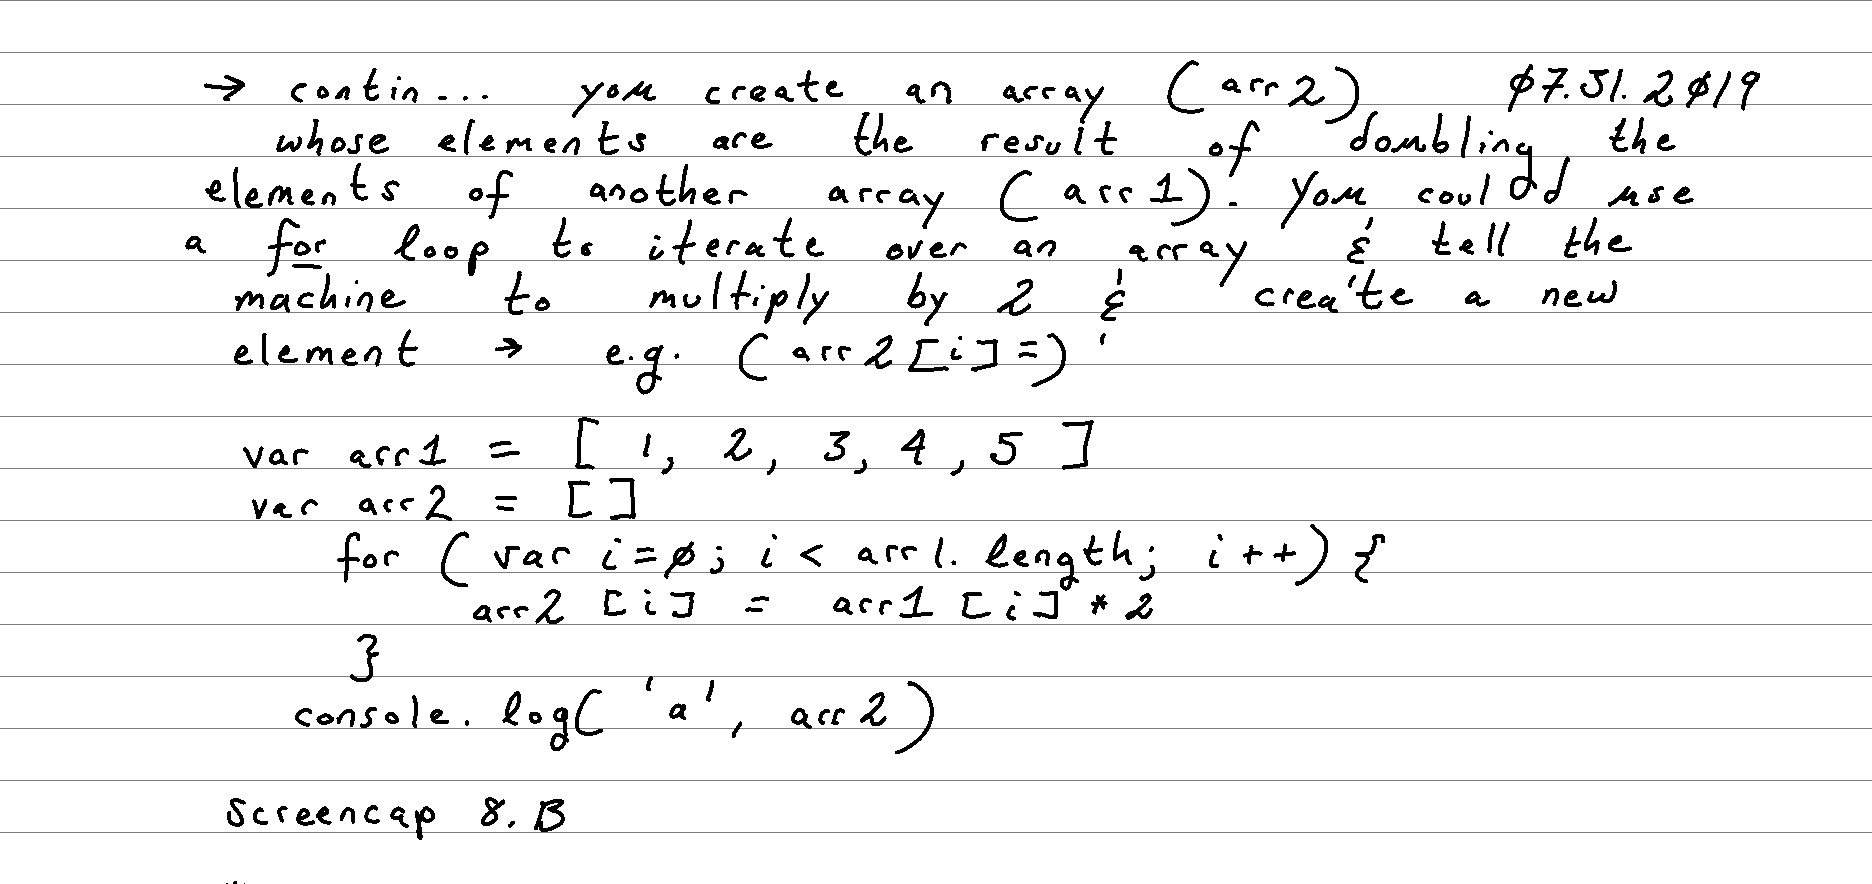 → contin... you create an array (arr2) 07.31.2019
whose elements are the result of doubling the
elements of another array (arr1). You could use
a for loop to iterate over an array & tell the
machine to multiply by 2 & create a new
element → e.g. (arr2[i]=)
var arr1 = [ 1, 2, 3, 4, 5 ]
var arr2 = []
for ( var i=0; i < arr1.length; i++) {
arr2 [i] = arr1 [i] * 2
}
console.log( 'a', arr2 )
Screencap 8.B